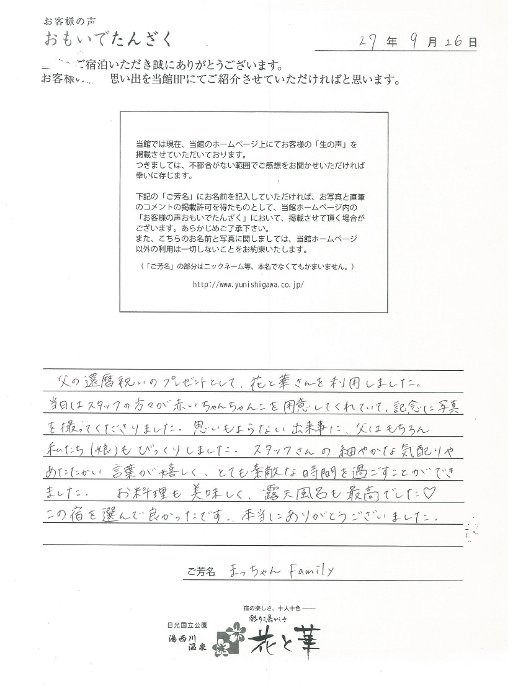 お客様の声
おもいでたんざく
27年9月26日
ご宿泊いただき誠にありがとうございます。
お客様 思い出を当館HPにてご紹介させていただければと思います。
当館では現在、当館のホームページ上にてお客様の「生の声」を
掲載させていただいております。
つきましては、不都合がない範囲でご感想をお聞かせいただければ
幸いに存じます。
下記の「ご芳名」にお名前を記入していただければ、お写真と直筆
のコメントの掲載許可を得たものとして、当館ホームページ内の
「お客様の声おもいでたんざく」において、掲載させて頂く場合が
ございます。あらかじめご了承下さい。
また、こちらのお名前と写真に関しましては、当館ホームページ
以外の利用は一切しないことをお約束いたします。
(「ご芳名」の部分はニックネーム等、本名でなくてもかまいません。)
http://www.yunishigawa.co.jp/
父の還暦祝いのプレゼントとして、花と華さんを利用しました。
当日はスタッフの方々が赤いちゃんちゃんこを用意してくれていて、記念に写真
を撮ってくださりました。思いもよらない出来事に、父はもちろん
私たち(娘)もびっくりしました。スタッフさんの細やかな気配りや
あたたかい言葉が嬉しく、とても素敵な時間を過ごすことができ
ました。 お料理も美味しく、露天風呂も最高でした♡
この宿を選んで良かったです。本当にありがとうございました。
ご芳名 まっちゃん Family
宿の楽しさ、十人十色
日光国立公園
湯西川
温泉
花と華